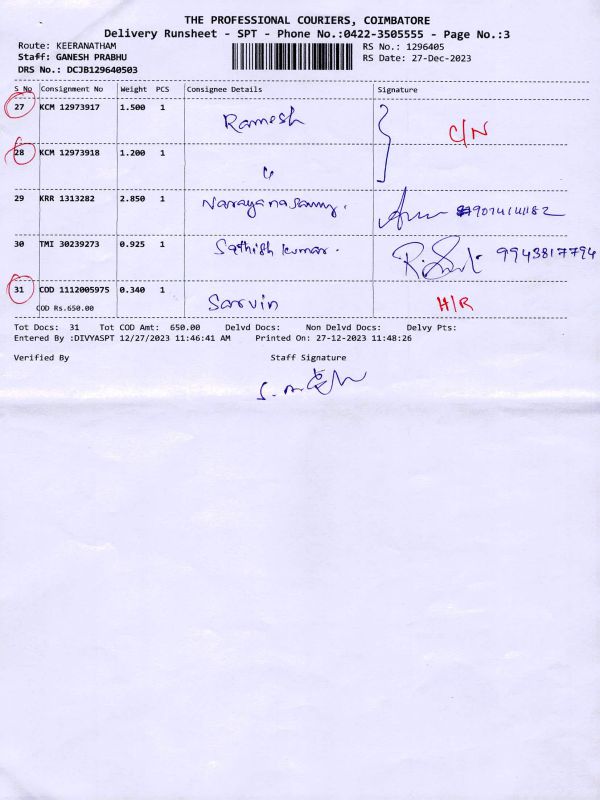 THE PROFESSIONAL COURIERS, COIMBATORE
Delivery Runsheet - SPT - Phone No.:0422-3505555 - Page No.:3
Route: KEERANATHAM
RS No.: 1296405
Staff: GANESH PRABHU
RS Date: 27-Dec-2023
DRS No.: DCJB129640503
S No Consignment No Weight PCS Consignee Details Signature
27 KCM 12973917 1.500 1 Ramesh
C/N
28 KCM 12973918 1.200 1 "
29 KRR 1313282 2.850 1 Narayanasamy.
30 TMI 30239273 0.925 1 Sathish kumar. 9943817794
31 COD 1112005975 0.340 1 Sarvin H/R
COD Rs.650.00
Tot Docs: 31 Tot COD Amt: 650.00 Delvd Docs: Non Delvd Docs: Delvy Pts:
Entered By :DIVYASPT 12/27/2023 11:46:41 AM Printed On: 27-12-2023 11:48:26
Verified By Staff Signature